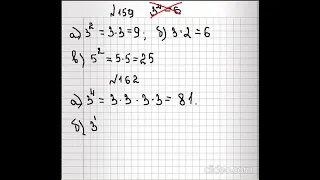 №159 3⁴=6
а) 3² = 3·3=9; б) 3·2=6
в) 5² = 5·5=25
№162
а) 3⁴ = 3·3·3·3= 81.
б) 3¹